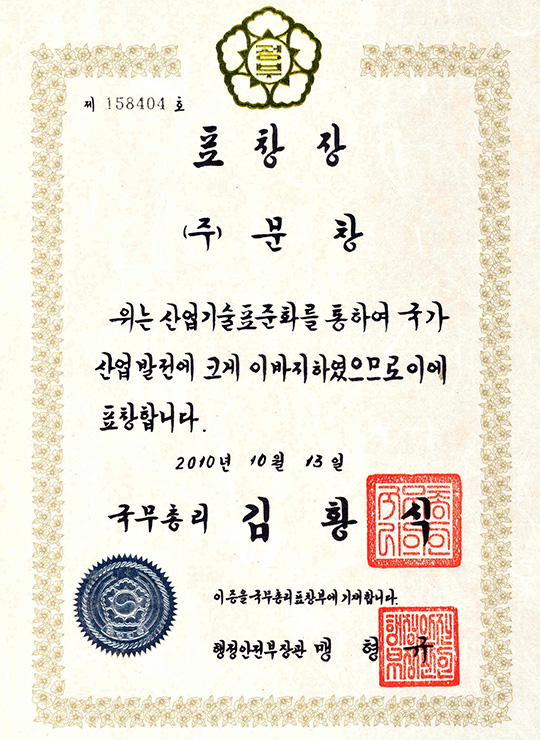 정부
제 158404 호
표 창 장
(주) 문 창
위는 산업기술표준화를 통하여 국가
산업발전에 크게 이바지하였으므로 이에
표창합니다.
2010년 10월 13일
국무총리 김 황 식
이 증을 국무총리표창부에 기재합니다.
행정안전부장관 맹 형 규